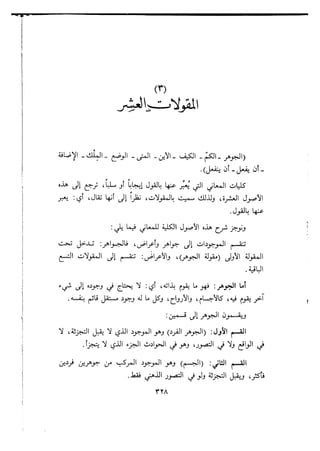 (٣)
المقولات العشر
(الجوهر - الكمّ - الكيف - الأين - المتى - الوضع - المِلْك - الإضافة
- أن يفعل - أن ينفعل).
كليات المعاني التي يُعبّر عنها بالقول إيجاباً أو سلباً، ترجع إلى هذه
الأصول العشرة، ولذلك سميت بالمقولات، نظراً إلى أنها تقال، أي: يعبر
عنها بالقول.
ونوجز شرح هذه الأصول الكلية للمعاني فيما يلي:
تنقسم الموجودات إلى جواهر وأعراض، فالجواهر: تدخل تحت
المقولة الأولى (مقولة الجوهر)، والأعراض: تنقسم إلى المقولات التسع
الباقية.
أما الجوهر: فهو ما يقوم بذاته، أي: لا يحتاج في وجوده إلى شيء
آخر يقوم فيه، كالأجسام، والأرواح، وكل ما له وجود مستقل قائم بنفسه.
ويقسمون الجوهر إلى قسمين:
القسم الأول: (الجوهر الفرد) وهو الموجود الذي لا يقبل التجزئة، لا
في الواقع ولا في التصور، وهو في الحوادث الجزء الذي لا يتجزأ.
القسم الثاني: (الجسم) وهو الموجود المركب من جوهرين فردين
فأكثر، ويقبل التجزئة ولو في التصور الذهني فقط.
٣٢٨